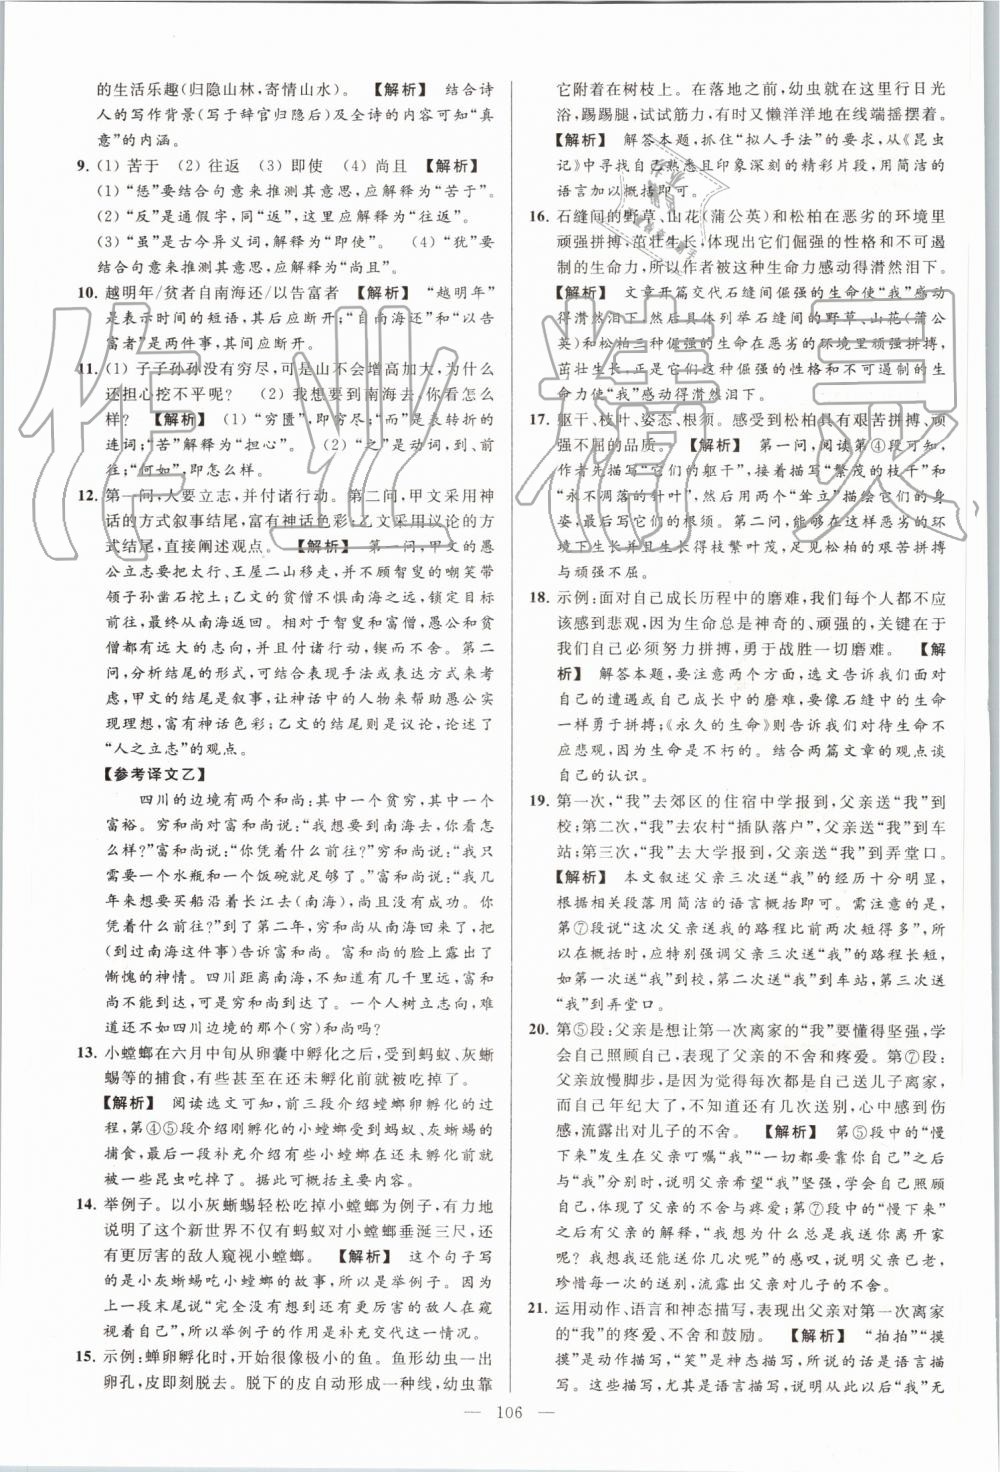 的生活乐趣(归隐山林,寄情山水)。 【解析】 结合诗
人的写作背景(写于辞官归隐后)及全诗的内容可知“真
意”的内涵。
9. (1) 苦于 (2) 往返 (3) 即使 (4) 尚且 【解析】
(1) “惩”要结合句意来推测其意思,应解释为“苦于”。
(2) “反”是通假字,同“返”,这里应解释为“往返”。
(3) “虽”是古今异义词,解释为“即使”。 (4) “犹”要
结合句意来推测其意思,应解释为“尚且”。
10. 越明年/贫者自南海还/以告富者 【解析】 “越明年”
是表示时间的短语,其后应断开;“自南海还”和“以告
富者”是两件事,其间应断开。
11. (1) 子子孙孙没有穷尽,可是山不会增高加大,为什么
还担心挖不平呢? (2) 我想要到南海去,你看怎么
样? 【解析】 (1) “穷匮”,即穷尽;“而”是表转折的
连词;“苦”解释为“担心”。 (2) “之”是动词,到、前
往;“何如”,即怎么样。
12. 第一问,人要立志,并付诸行动。第二问,甲文采用神
话的方式叙事结尾,富有神话色彩;乙文采用议论的方
式结尾,直接阐述观点。 【解析】 第一问,甲文的愚
公立志要把太行、王屋二山移走,并不顾智叟的嘲笑带
领子孙凿石挖土;乙文的贫僧不惧南海之远,锁定目标
前往,最终从南海返回。相对于智叟和富僧,愚公和贫
僧都有远大的志向,并付诸行动,锲而不舍。第二
问,分析结尾的形式,可结合表现手法或表达方式来考
虑,甲文的结尾是叙事,让神话中的人物来帮助愚公实
现理想,富有神话色彩;乙文的结尾则是议论,论述了
“人之立志”的观点。
【参考译文乙】
四川的边境有两个和尚:其中一个贫穷,其中一个
富裕。穷和尚对富和尚说:“我想要到南海去,你看怎
么样?”富和尚说:“你凭着什么前往?”穷和尚说:“我只
需要一个水瓶和一个饭碗就足够了。”富和尚说:“我几
年来想要买船沿着长江去(南海),尚未成功。你凭着
什么前往!”到了第二年,穷和尚从南海回来了,把
(到过南海这件事)告诉富和尚。富和尚的脸上露出了
惭愧的神情。四川距离南海,不知道有几千里远,富和
尚不能到达,可是穷和尚到达了。一个人树立志向,难
道还不如四川边境的那个(穷)和尚吗?
13. 小螳螂在六月中旬从卵囊中孵化之后,受到蚂蚁、灰蜥
蜴等的捕食,有些甚至在还未孵化前就被吃掉了。
【解析】 阅读选文可知,前三段介绍螳螂卵孵化的过
程,第④⑤段介绍刚孵化的小螳螂受到蚂蚁、灰蜥蜴的
捕食,最后一段补充介绍有些小螳螂在还未孵化前就被
一些昆虫吃掉了。据此可概括主要内容。
14. 举例子。以小灰蜥蜴轻松吃掉小螳螂为例子,有力地
说明了这个新世界不仅有蚂蚁对小螳螂垂涎三尺,还
有更厉害的敌人窥视小螳螂。 【解析】 这个句子写
的是小灰蜥蜴吃小螳螂的故事,所以是举例子。因为
上一段末尾说“完全没有想到有更厉害的敌人在窥
视着自己”,所以举例子的作用是补充交代这一情况。
15. 示例:蝉卵孵化时,开始很像极小的鱼。鱼形幼虫一出
卵孔,皮即刻脱去。脱下的皮自动形成一种线,幼虫靠
它附着在树枝上。在落地之前,幼虫就在这里行日光
浴,踢踢腿,试试筋力,有时又懒洋洋地在线端摇摆着。
【解析】 解答本题,抓住“拟人手法”这一要求,从《昆虫
记》中寻找自己熟悉且印象深刻的精彩片段,用简洁的
语言加以概括即可。
16. 石缝间的野草、山花(蒲公英)和松柏在恶劣的环境里
顽强拼搏,茁壮生长,体现出它们倔强的性格和不可遏
制的生命力,所以作者被这种生命力感动得潸然泪下。
【解析】 文章开篇交代石缝间倔强的生命使“我”感动
得潸然泪下,然后具体列举石缝间的野草、山花(蒲公
英)和松柏三种倔强的生命在恶劣的环境里顽强拼搏,
茁壮生长,正是它们这种倔强的性格和不可遏制的生
命力使“我”感动得潸然泪下。
17. 躯干、枝叶、姿态、根须。感受到松柏具有艰苦拼搏、顽
强不屈的品质。 【解析】 第一问,阅读第④段可知,
作者先描写“它们的躯干”,接着描写“繁茂的枝干”和
“永不凋落的针叶”,然后用两个“耸立”描写它们的身
姿,最后写它们的根须。第二问,能够在如此恶劣的环
境下生长并且长得枝繁叶茂,足见松柏的艰苦拼搏
与顽强不屈。
18. 示例:面对自己成长历程中的磨难,我们每个人都不应
该感到悲观,因为生命总是神奇的、顽强的,关键在于
我们自己必须努力拼搏,勇于战胜一切磨难。 【解
析】 解答本题,要注意两个方面,选文告诉我们面对
自己的遭遇或自己成长中的磨难,要像石缝中的生命
一样勇于拼搏;《永久的生命》则告诉我们对待生命不
应悲观,因为生命是不朽的。结合两篇文章的观点谈
自己的认识。
19. 第一次,“我”去郊区的住宿中学报到,父亲送“我”到
校;第二次,“我”去农村“插队落户”,父亲送“我”到车
站;第三次,“我”去大学报到,父亲送“我”到弄堂口。
【解析】 本文叙述父亲三次送“我”的经历十分明显,
根据相关段落用简洁的语言概括即可。需注意的是,
第⑦段说“这次父亲送我的路程比前两次短得多”,所
以在概括时,应特别强调父亲三次送“我”的路程长短,
如第一次送“我”到校,第二次送“我”到车站,第三次送
“我”到弄堂口。
20. 第⑤段:父亲是想让第一次离家的“我”要懂得坚强,学
会自己照顾自己,表现了父亲的不舍和疼爱。第⑦段:
父亲放慢脚步,是因为觉得每次都是送儿子离家,
而自己年纪大了,不知道还能送几次,心中感到伤
感,流露出对儿子的不舍。 【解析】 第⑤段中的“慢
下来”发生在父亲叮嘱“我”“一切都要靠你自己”之后
与“我”分别时,说明父亲希望“我”坚强,学会自己照
顾自己,体现了父亲的不舍与疼爱;第⑦段中的“慢下
来”,结合父亲的解释,“我想为什么总是我送你们离家
呢? 我想我还能送你几次呢”的感叹,说明父亲已老,
珍惜每一次的送别,流露出父亲对儿子的不舍。
21. 运用动作、语言和神态描写,表现出父亲对第一次离家
的“我”的疼爱、不舍和鼓励。 【解析】 “拍拍”“摸
摸”是动作描写,“笑”是神态描写,所说的话是语言描
写。这些描写,尤其是语言描写,说明从此以后“我”无
— 106 —
作业精灵